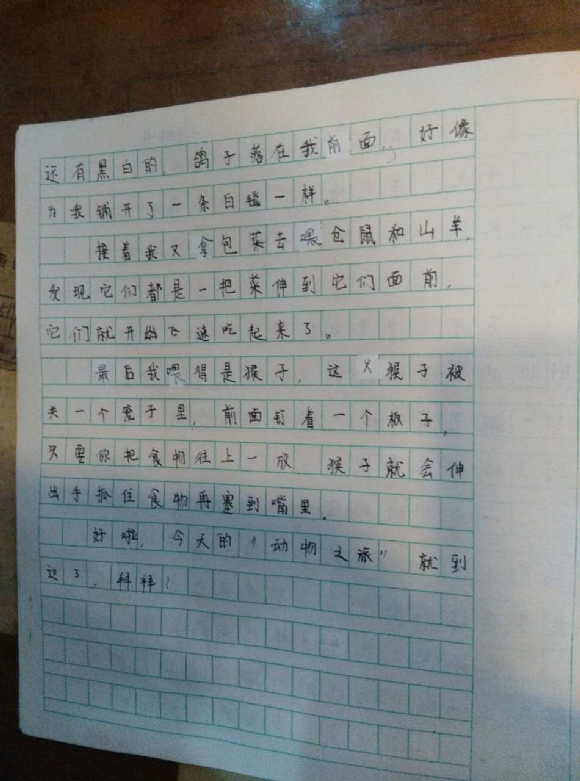 还有黑白的，鸽子落在我前面，好像
为我铺开了一条白毯一样。
接着我又拿包菜去喂仓鼠和山羊，
发现它们都是一把菜伸到它们面前，
它们就开始飞速吃起来了。
最后我喂得是猴子，这只猴子被
关一个笼子里，前面钉着一个板子，
只要你把食物往上一放，猴子就会伸
出手抢住食物再塞到嘴里。
好啦，今天的“动物之旅”就到
这了，拜拜！